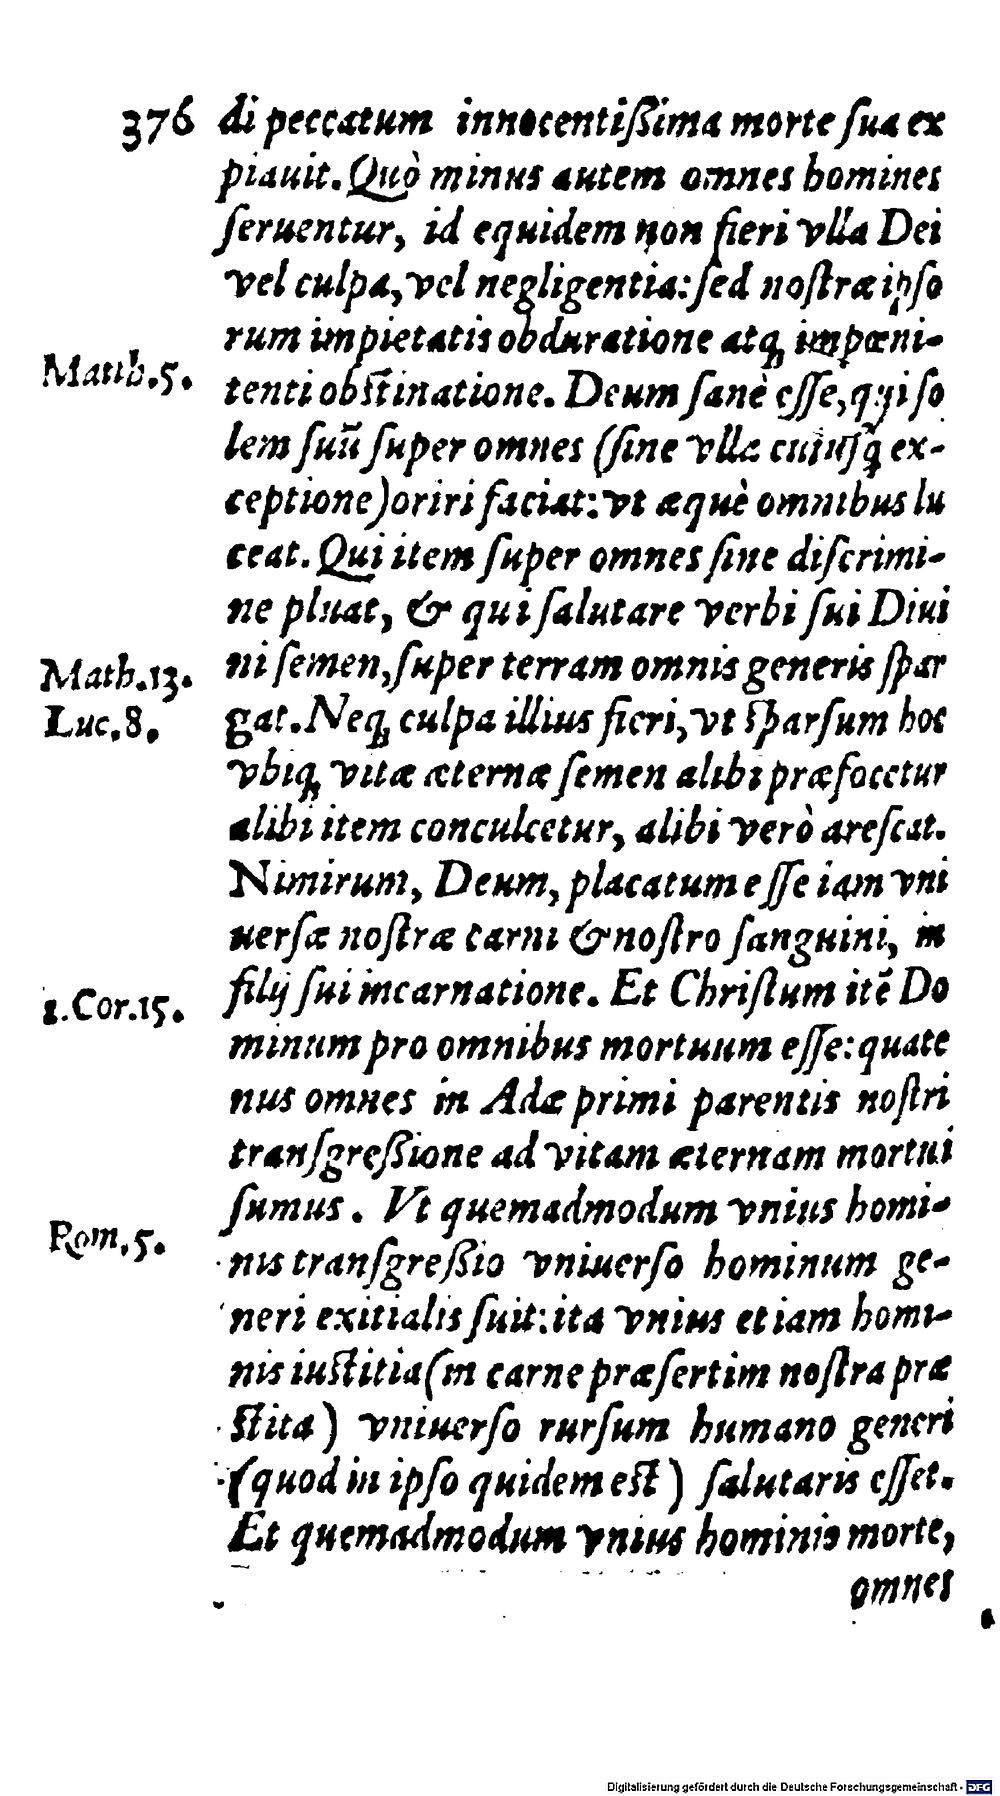 376 di peccatum innocentißima morte ſua ex
piauit. Quò minus autem omnes homines
ſeruentur, id equidem non fieri vlla Dei
vel culpa, vel negligentia: ſed noſtræ ipſo
rum impietatis obduratione atq; impœni-
Matth.5.
tenti obſtinatione. Deum ſanè eſſe, qui ſo
lem ſuū ſuper omnes (ſine vlla cuiuſq; ex-
ceptione) oriri faciat: vt æquè omnibus lu
ceat. Qui item ſuper omnes ſine diſcrimi-
ne pluat, & qui ſalutare verbi ſui Diui
Math.13.
ni ſemen, ſuper terram omnis generis ſpar
Luc.8.
gat. Neq; culpa illius fieri, vt ſparſum hoc
vbiq; vitæ æternæ ſemen alibi præfocetur
alibi item conculcetur, alibi verò areſcat.
Nimirum, Deum, placatum eſſe iam vni
uerſæ noſtræ carni & noſtro ſanguini, in
1.Cor.15.
filij ſui incarnatione. Et Chriſtum itē Do
minum pro omnibus mortuum eſſe: quate
nus omnes in Adæ primi parentis noſtri
tranſgreßione ad vitam æternam mortui
ſumus. Vt quemadmodum vnius homi-
Rom.5.
nis tranſgreßio vniuerſo hominum ge-
neri exitialis fuit: ita vnius etiam homi-
nis iuſtitia (in carne præſertim noſtra præ
ſtita) vniuerſo rurſum humano generi
(quod in ipſo quidem eſt) ſalutaris eſſet.
Et quemadmodum vnius hominis morte,
omnes
Digitalisierung gefördert durch die Deutsche Forschungsgemeinschaft - DFG